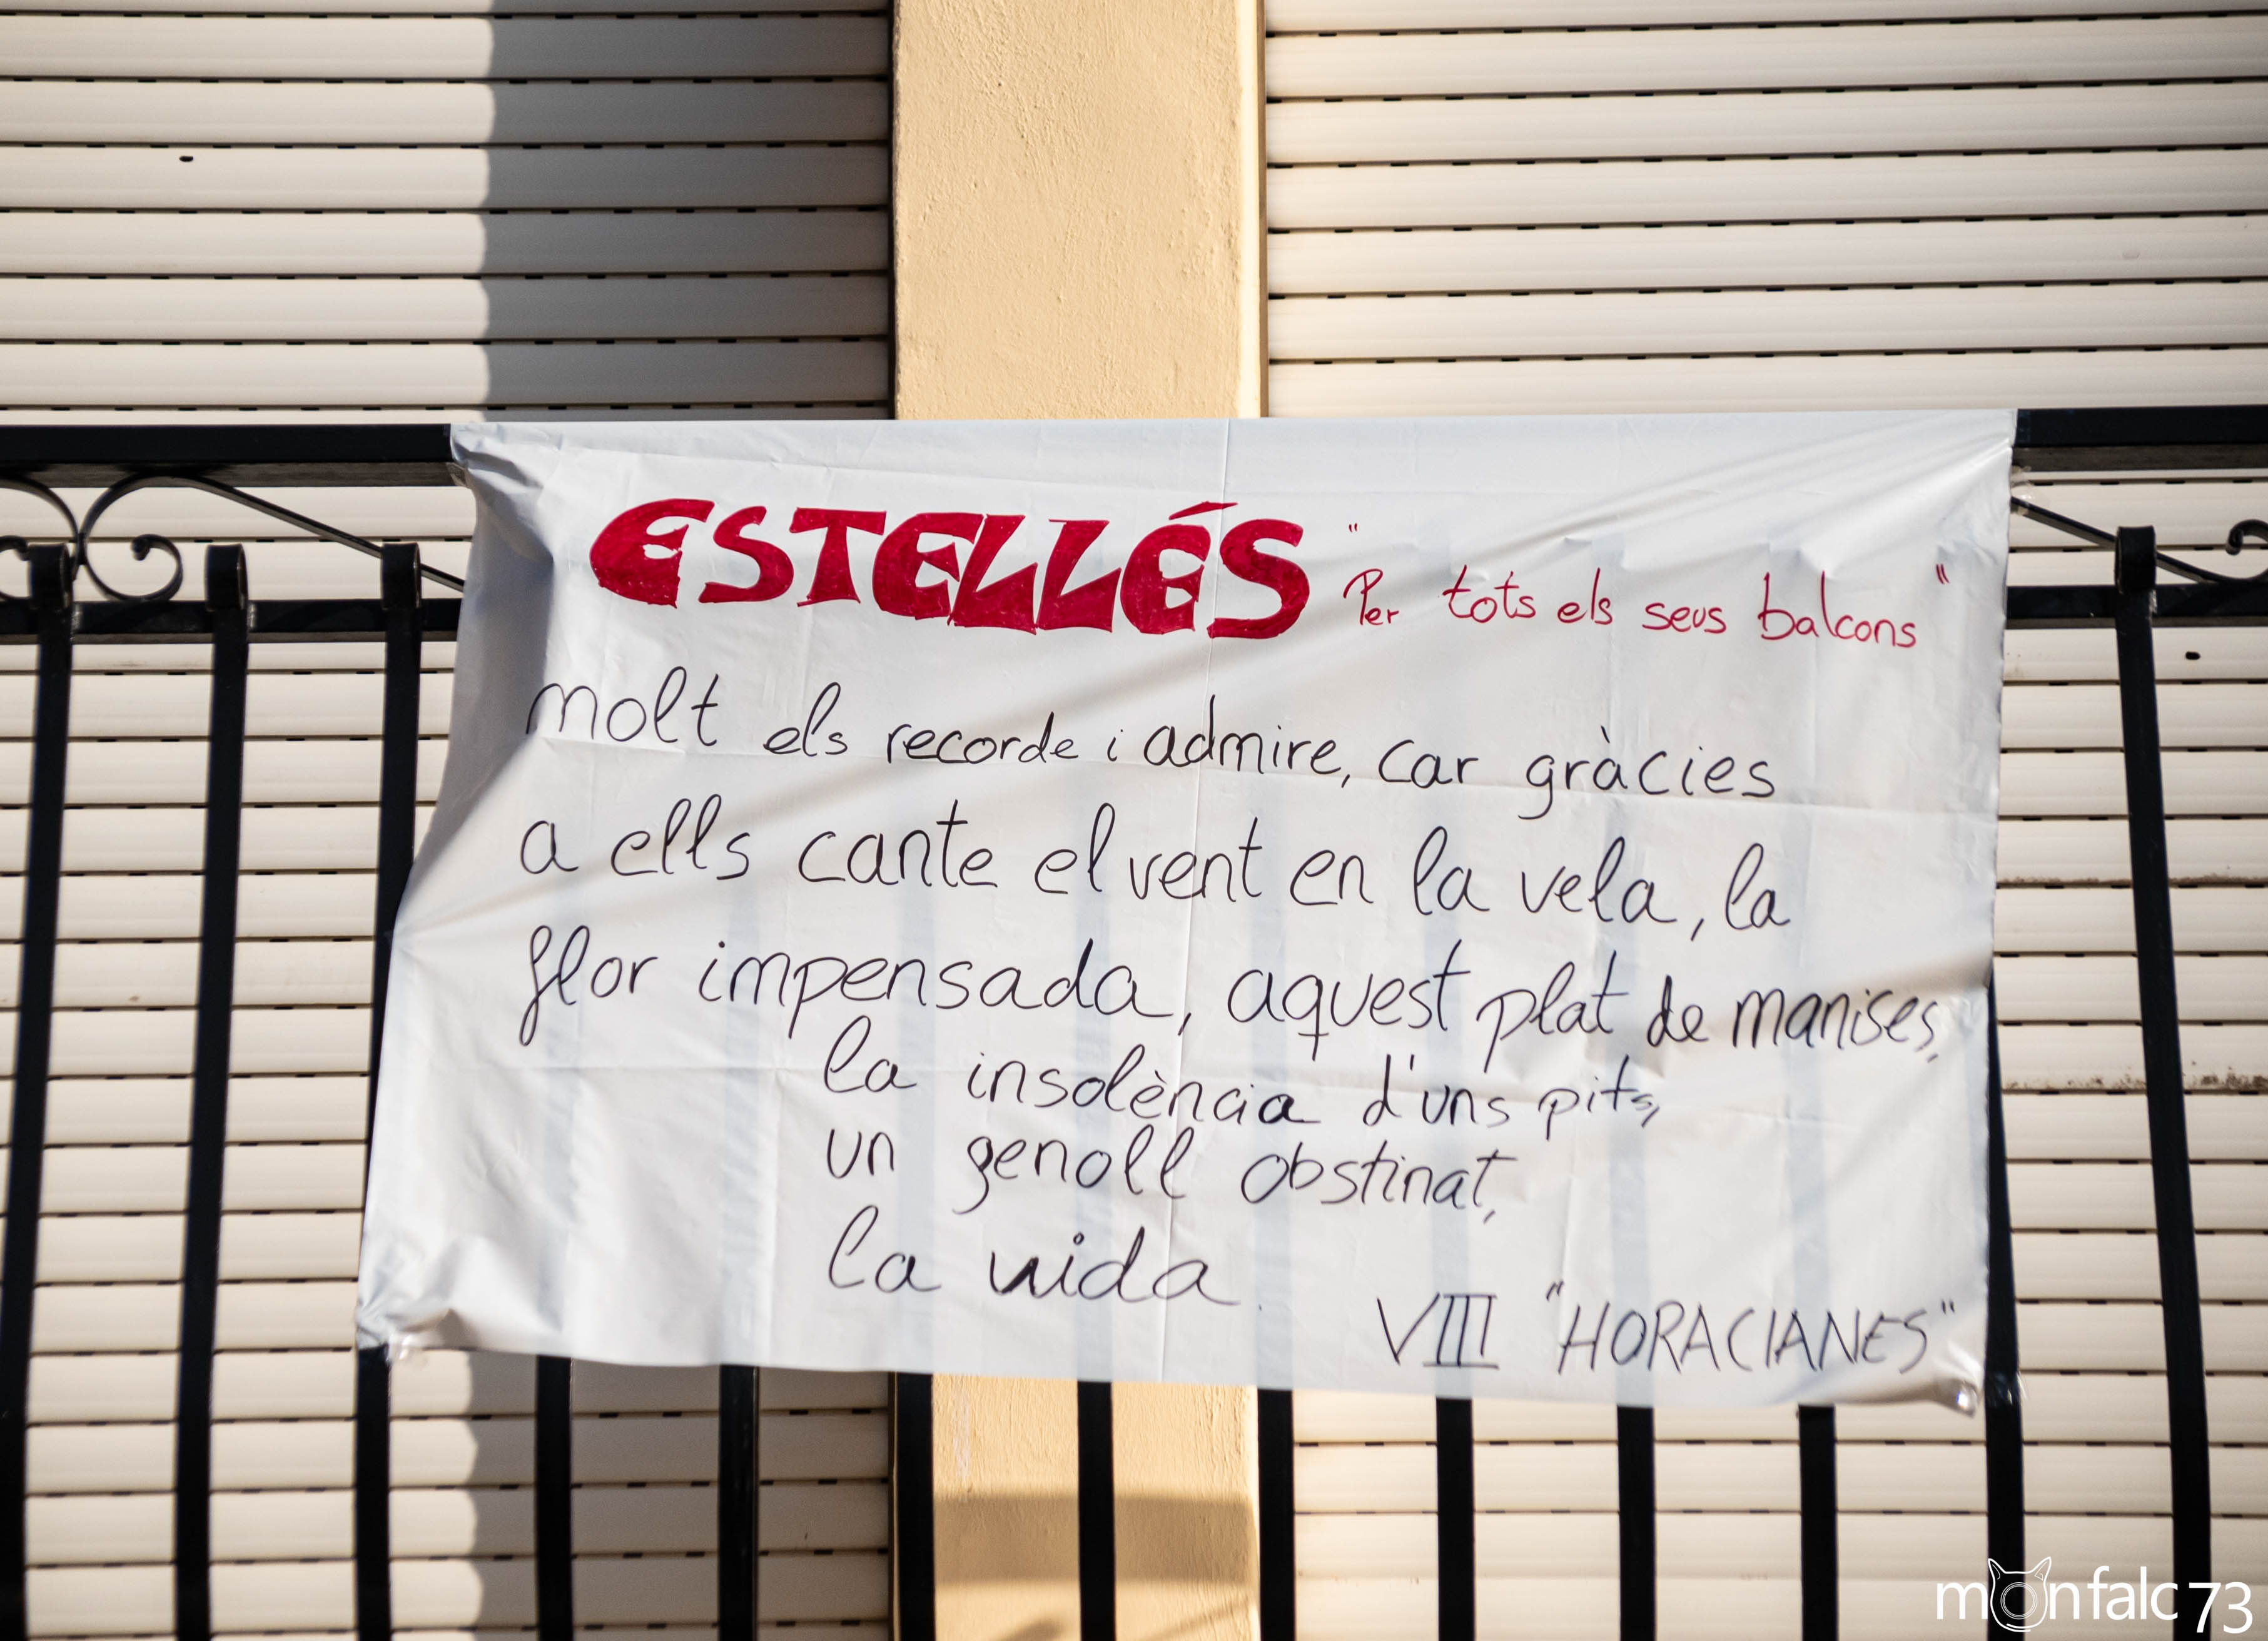 ESTELLÉS "Per tots els seus balcons"
molt els recorde i admire, car gràcies
a ells cante el vent en la vela, la
flor impensada, aquest plat de manises,
la insolència d'uns pits,
un genoll obstinat,
la vida.
VIII "HORACIANES"
monfalc 73